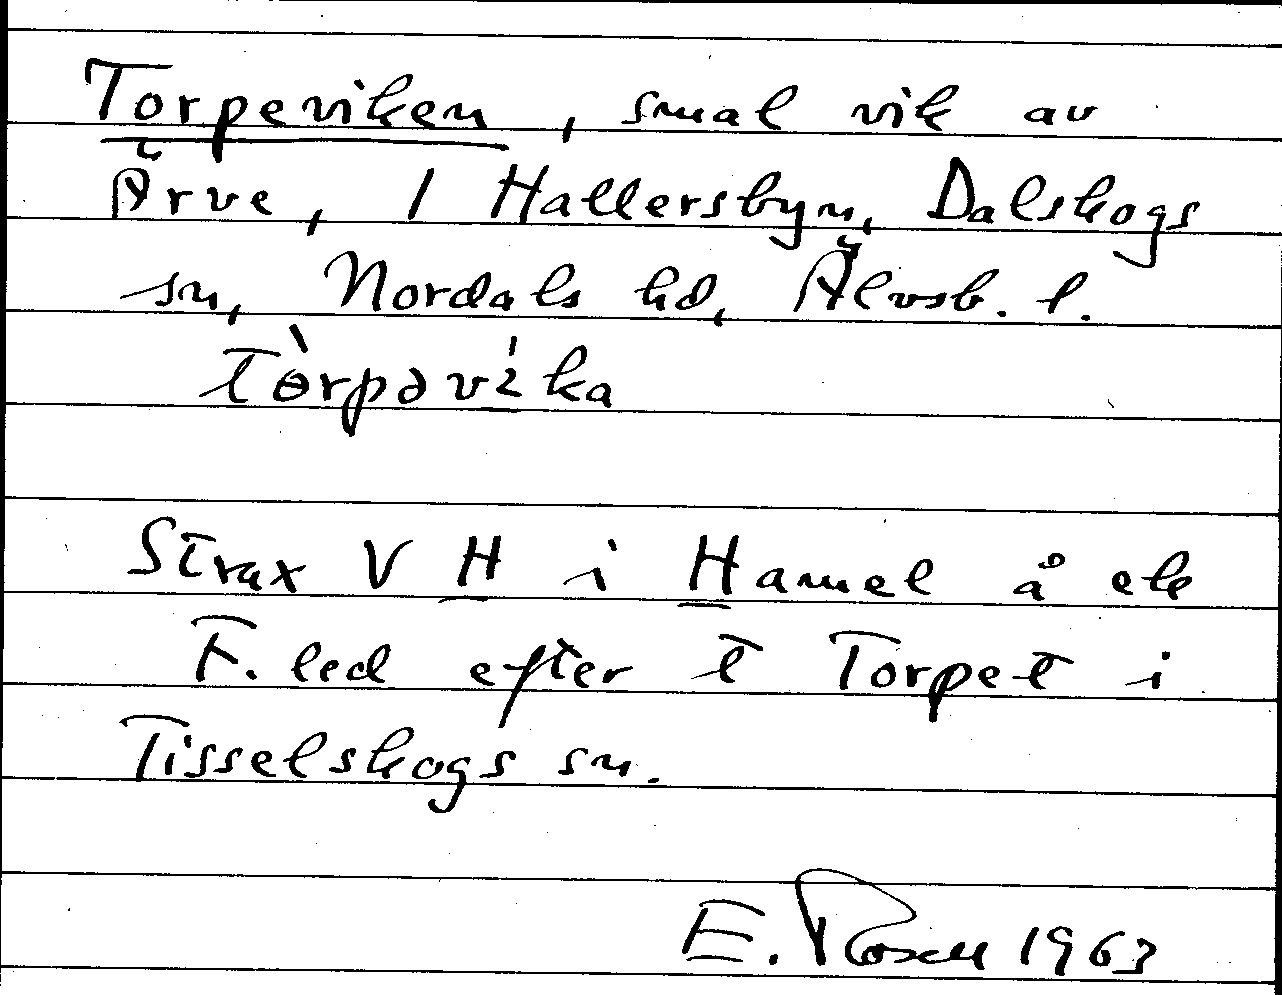 Torpeviken, smal vik av
Ärve, / Hallersbyn, Dalskogs
sn, Nordals hd, Älvsb. l.
tòrpəvíka
Strax V H i Hamel å ek
F. led efter t Torpet i
Tisselskogs sn.
E. Rosell 1963